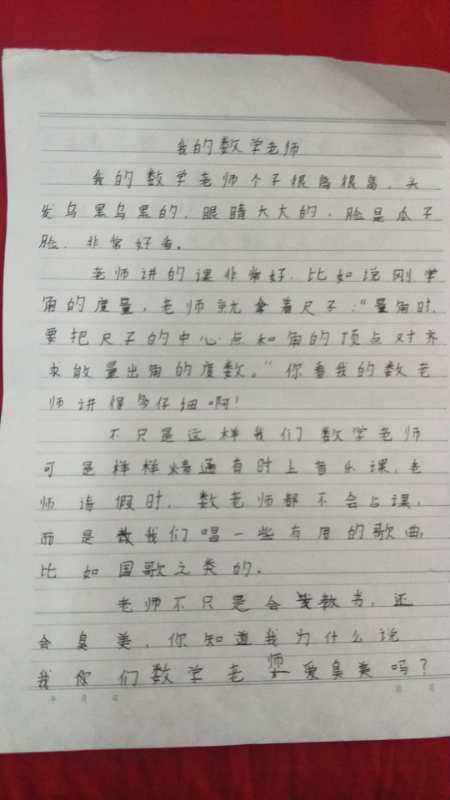 我的数学老师
我的数学老师个子很高很高，头
发乌黑乌黑的，眼睛大大的，脸是瓜子
脸，非常好看。
老师讲的课非常好，比如说刚学
角的度量，老师就拿着尺子："量角时，
要把尺子的中心点和角的顶点对齐
求放量出角的度数。"你看我的数老
师讲得多仔细啊！
不只是这样我们数学老师
可是样样精通有时上音乐课，老
师请假时，数老师都不会占课，
而是教我们唱一些有用的歌曲，
比如国歌之类的。
老师不只是会教书，还
会臭美，你知道我为什么说
我们数学老师爱臭美吗？